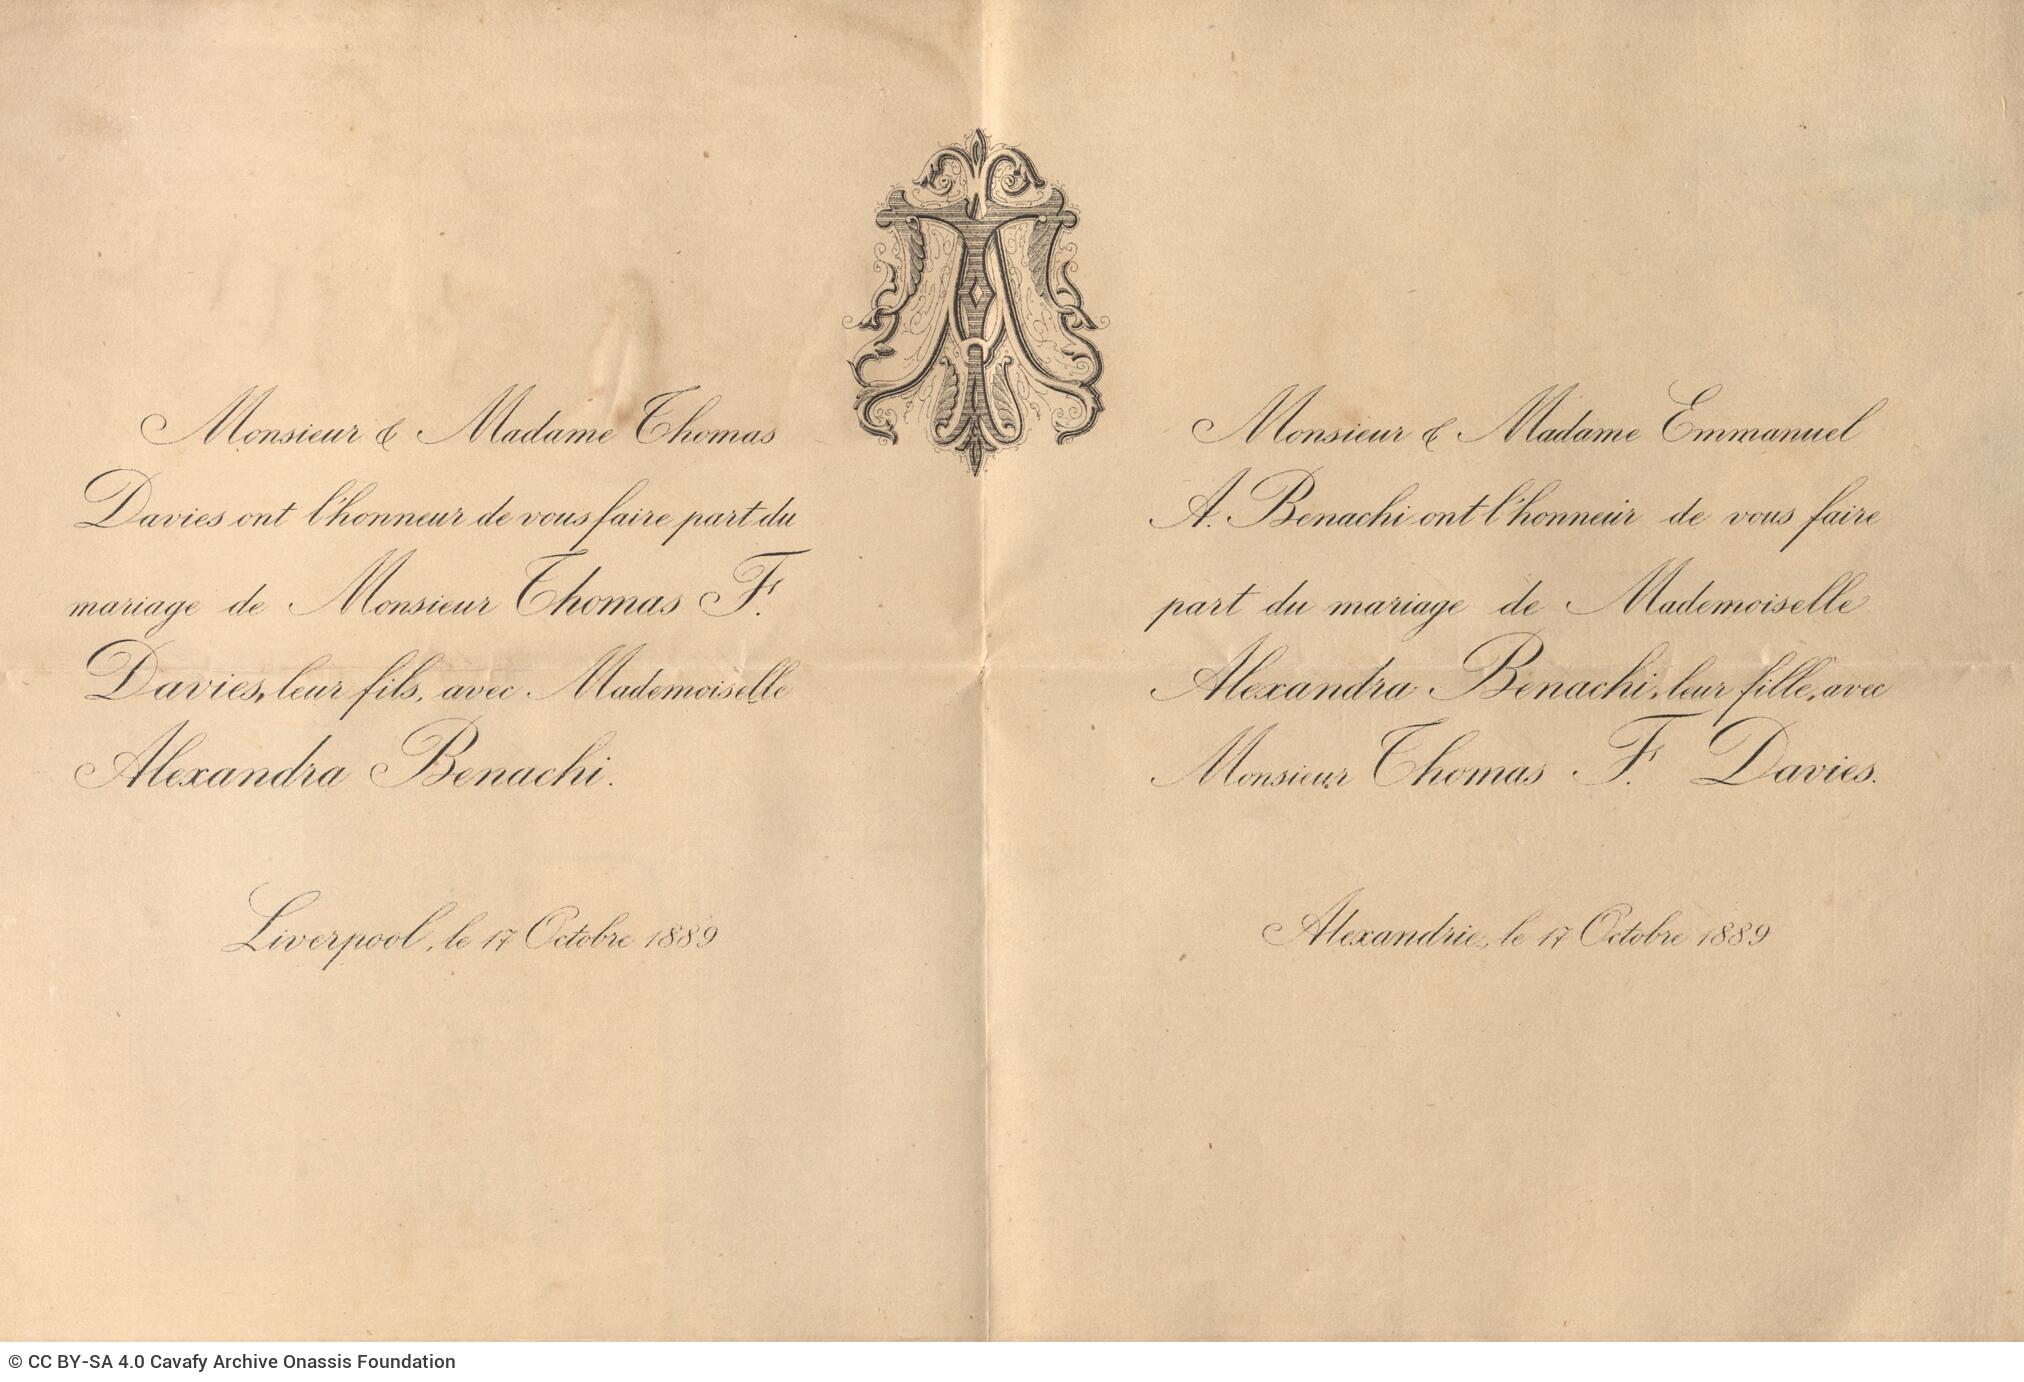 Monsieur & Madame Thomas
Davies ont l'honneur de vous faire part du
mariage de Monsieur Thomas F.
Davies, leur fils, avec Mademoiselle
Alexandra Benachi.
Liverpool, le 17 Octobre 1889
Monsieur & Madame Emmanuel
A. Benachi ont l'honneur de vous faire
part du mariage de Mademoiselle
Alexandra Benachi, leur fille, avec
Monsieur Thomas F. Davies.
Alexandrie, le 17 Octobre 1889
© CC BY-SA 4.0 Cavafy Archive Onassis Foundation